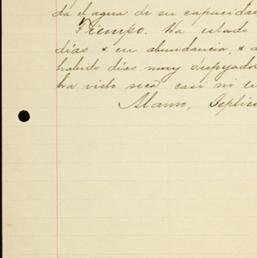 da el agua de su capacidad
Tiempo. Ha estado
días & en abundancia, & a
habido días muy
ha visto seca casi ni
Alamo, Septie